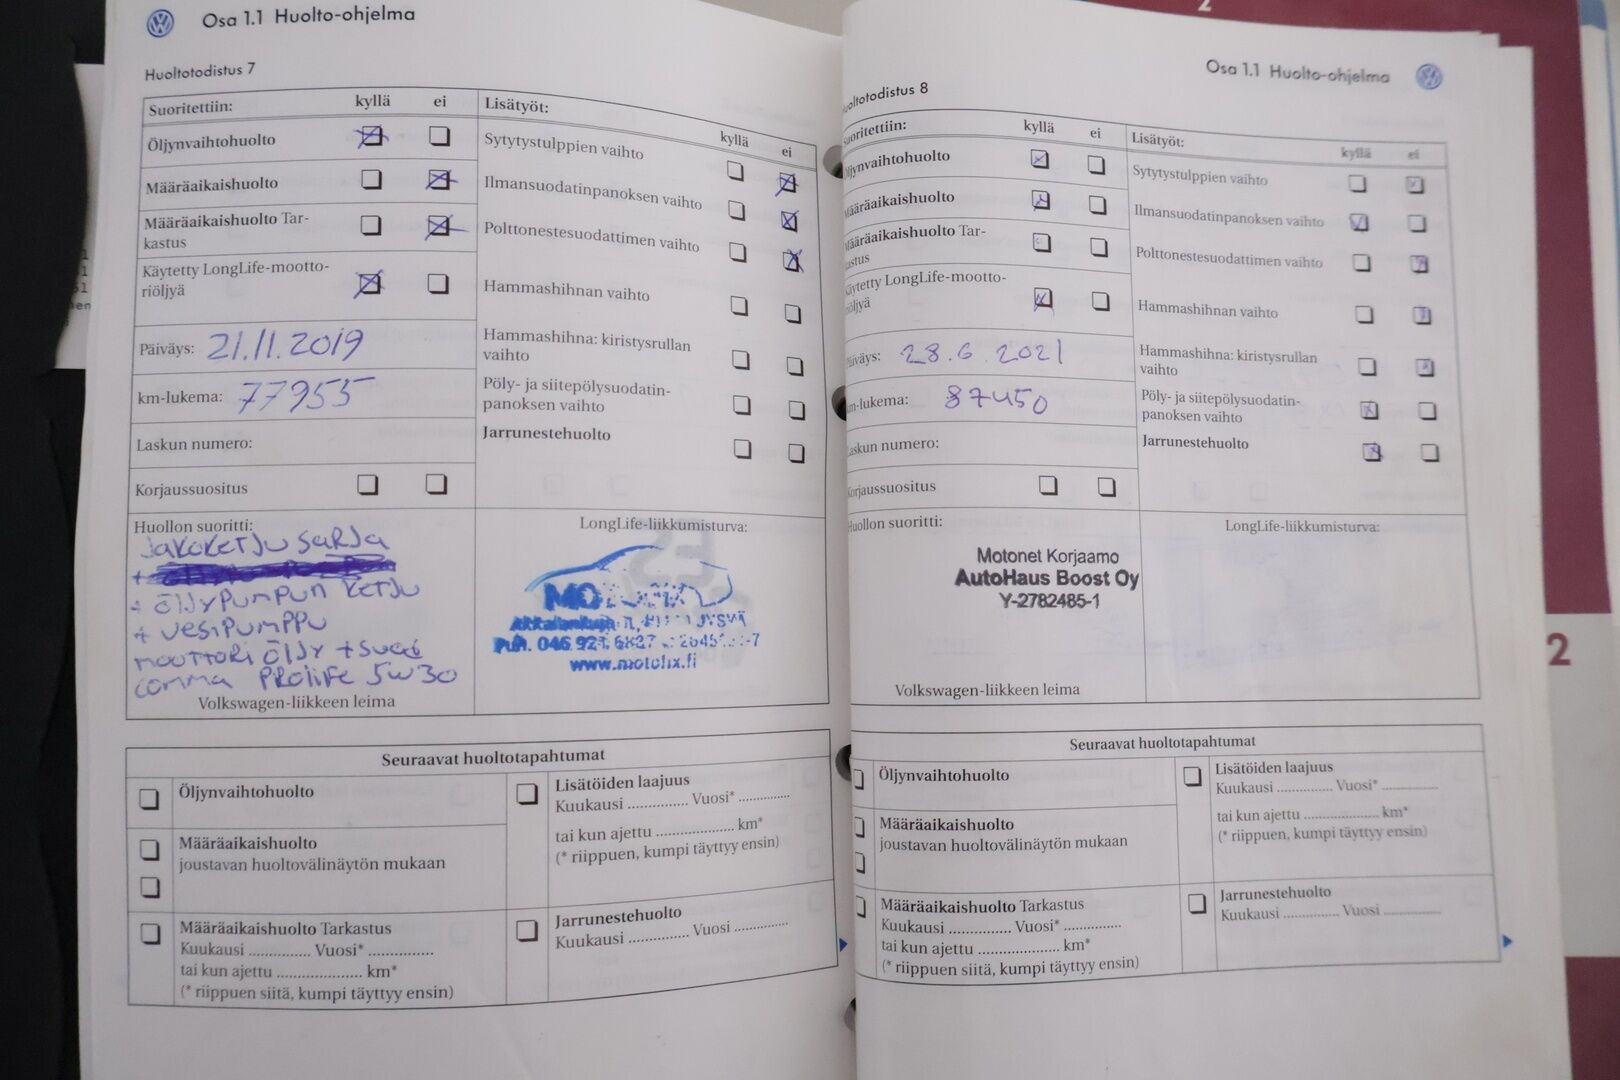 Osa 1.1 Huolto-ohjelma
Huoltotodistus 7
Suoritettiin: kyllä ei
Öljynvaihtohuolto
Määräaikaishuolto
Määräaikaishuolto Tar-
kastus
Käytetty LongLife-mootto-
riöljyä
Päiväys: 21.11.2019
km-lukema: 77955
Laskun numero:
Korjaussuositus
Lisätyöt:
kyllä ei
Sytytystulppien vaihto
Ilmansuodatinpanoksen vaihto
Polttonestesuodattimen vaihto
Hammashihnan vaihto
Hammashihna: kiristysrullan
vaihto
Pöly- ja siitepölysuodatin-
panoksen vaihto
Jarrunestehuolto
Huollon suoritti:
Jakoketju sarja
+
+ öljypumpun ketju
+ vesipumppu
moottori öljy +
comma Prolife 5W30
Volkswagen-liikkeen leima
LongLife-liikkumisturva:
Puh. 046 921 6827
www.motofix.fi
Seuraavat huoltotapahtumat
Öljynvaihtohuolto
Määräaikaishuolto
joustavan huoltovälinäytön mukaan
Määräaikaishuolto Tarkastus
Kuukausi .......... Vuosi* ..............
tai kun ajettu ..................... km*
(* riippuen siitä, kumpi täyttyy ensin)
Lisätöiden laajuus
Kuukausi ............... Vuosi* .............
tai kun ajettu .................... km*
(* riippuen, kumpi täyttyy ensin)
Jarrunestehuolto
Kuukausi ............... Vuosi ..............
2
Osa 1.1 Huolto-ohjelma
oltotodistus 8
uoritettiin: kyllä ei
Öljynvaihtohuolto
Määräaikaishuolto
Määräaikaishuolto Tar-
astus
äytetty LongLife-mootto-
riöljyä
äiväys: 28.6.2021
km-lukema: 87450
askun numero:
orjaussuositus
Lisätyöt:
kyllä ei
Sytytystulppien vaihto
Ilmansuodatinpanoksen vaihto
Polttonestesuodattimen vaihto
Hammashihnan vaihto
Hammashihna: kiristysrullan
vaihto
Pöly- ja siitepölysuodatin-
panoksen vaihto
Jarrunestehuolto
Huollon suoritti:
Motonet Korjaamo
AutoHaus Boost Oy
Y-2782485-1
Volkswagen-liikkeen leima
LongLife-liikkumisturva:
Seuraavat huoltotapahtumat
Öljynvaihtohuolto
Määräaikaishuolto
joustavan huoltovälinäytön mukaan
Määräaikaishuolto Tarkastus
Kuukausi .............. Vuosi* .............
tai kun ajettu .................... km*
(* riippuen siitä, kumpi täyttyy ensin)
Lisätöiden laajuus
Kuukausi ............. Vuosi* .............
tai kun ajettu .................... km*
(* riippuen, kumpi täyttyy ensin)
Jarrunestehuolto
Kuukausi ............. Vuosi .............
2